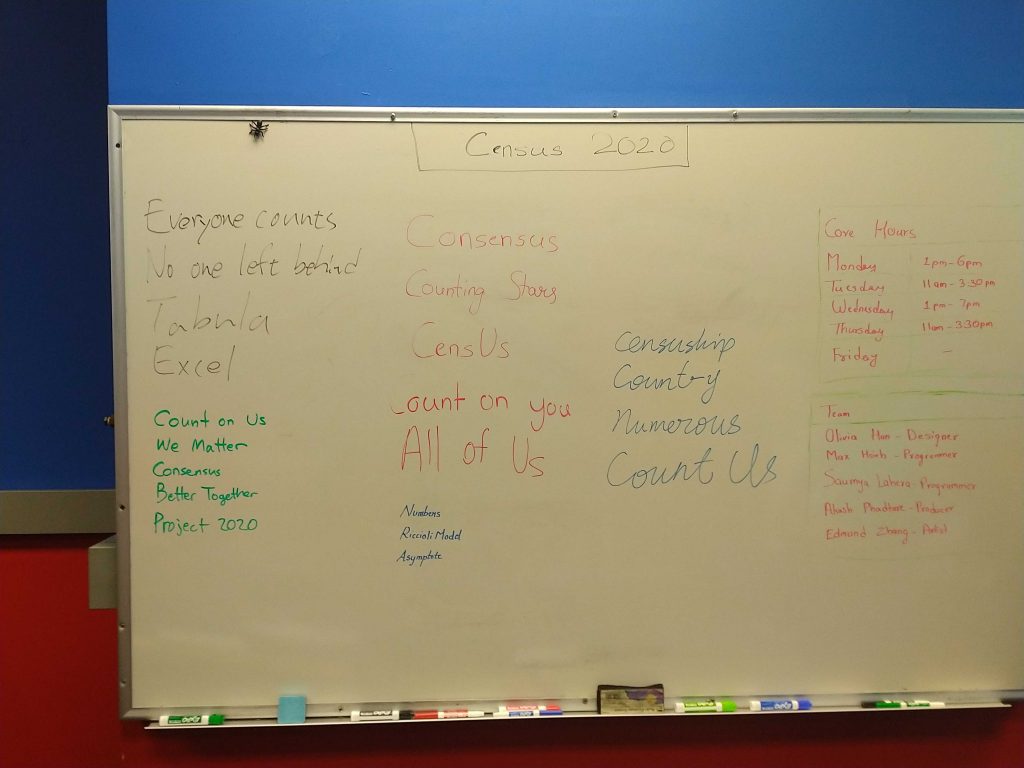 Census 2020
Everyone counts
No one left behind
Tabula
Excel
Count on Us
We Matter
Consensus
Better Together
Project 2020
Consensus
Counting Stars
CensUs
Count on you
All of Us
Numbers
Riccioli Model
Asymptote
Censuship
Country
Numerous
Count Us
Core Hours
Monday 1pm-6pm
Tuesday 11am-3:30pm
Wednesday 1pm-7pm
Thursday 11am-330pm
Friday -
Team
Olivia Han - Designer
Max Hsieh - Programmer
Saumya - Programmer
Akash Phadtare - Producer
Edmund Zhang - Artist
EXPO